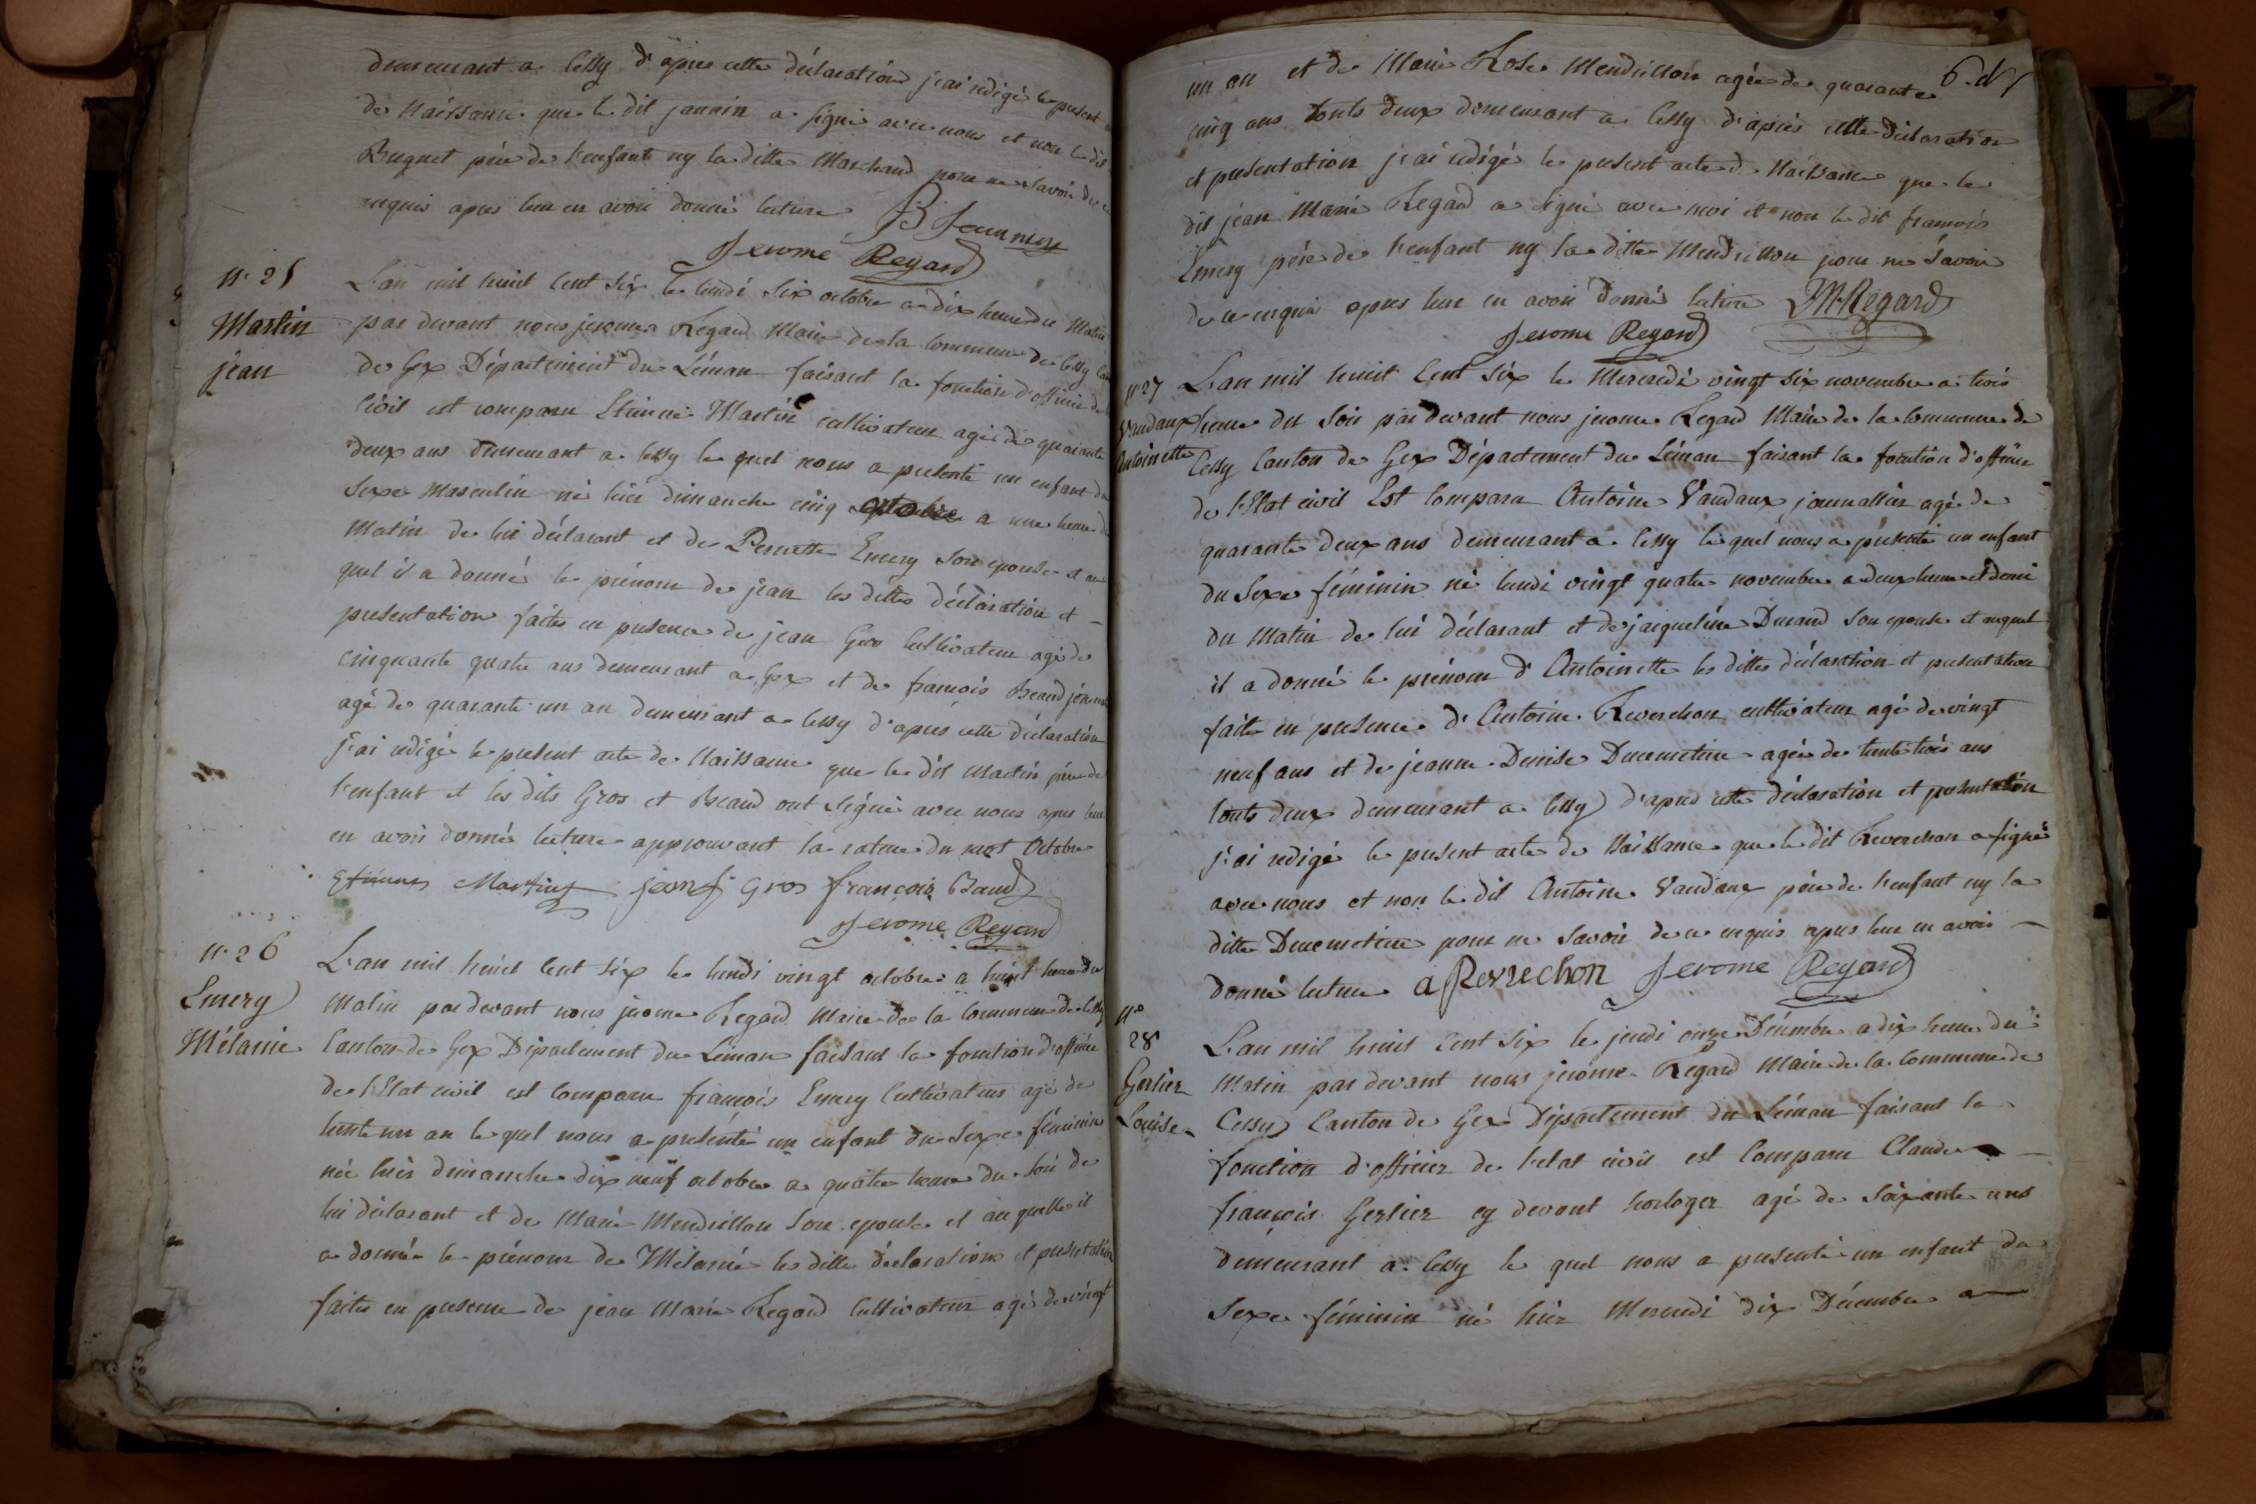 demeurant a Cessy d'apres cette déclaration j'ai redigé le present
de Naissance que le dit janain a signé avec nous et non le dit
Buguet père de l'enfant ny la ditte Marchand pour ne savoir de ce
requis apres leur en avoir donné lecture
Jerome Regard
n. 25
Martin
jean
L'an mil huit cent six le lundi six octobre a dix heure du Matin
par devant nous jerome Regard Maire de la Commune de Cessy
de Gex Département du Léman faisant la fonction d'officier de
Civil est comparu Etienne Martin cultivateur agé de quarante
deux ans demeurant a Cessy le quel nous a presenté un enfant du
Sexe Masculin né hier dimanche cinq octobre a une heure du
Matin de lui déclarant et de Pernette Emery son epouse et au
quel il a donné le prénom de jean les dittes déclaration et
presentation faites en presence de jean Gros Cultivateur agé de
cinquante quatre ans demeurant a Gex et de francois
agé de quarante un an demeurant a Cessy d'aprés cette déclaration
j'ai redigé le present acte de Naissance que le dit Martin père de
l'enfant et les dits Gros et Beaud ont Signé avec nous apres leur
en avoir donné lecture approuvant la rature du mot Octobre
Etienne Martin jean f Gros françois Baud
Jerome Regard
n. 26
Emery
Mélanie
L'an mil huit cent six le lundi vingt octobre a huit heure du
Matin par devant nous jerome Regard Maire de la Commune de Cessy
Canton de Gex Département du Léman faisant la fonction d'officier
de l'Etat civil est comparu françois Emery Cultivateur agé de
trente un an le quel nous a presenté un enfant du Sexe féminin
née hier dimanche dix neuf octobre a quatre heure du soir de
lui déclarant et de Marie Mendrillon Son epouse et au quelle il
a donné le prénom de Mélanie les ditte déclarations et presentation
faites en presence de jean Marie Regard Cultivateur agé de vingt
6
un an et de Marie Rose Mendrillon agée de quarante
cinq ans touts deux demeurant a Cessy d'aprés cette déclaration
et presentation j'ai redigé le present acte de Naissance que le
dit jean Marie Regard a signé avec moi et non le dit francois
Emery père de l'enfant ny la ditte Mendrillon pour ne Savoir
de ce requis apres leur en avoir donné lecture JM Regard
Jerome Regard
n° 27
Vaudaux
Antoinette
L'an mil huit Cent Six le Mercredi vingt six novembre a trois
heure du Soir par devant nous jerome Regard Maire de la Commune de
Cessy Canton de Gex Département du Léman faisant la fonction d'officier
de l'Etat civil Est Comparu Antoine Vaudaux journallier agé de
quarante deux ans demeurant a Cessy le quel nous a presenté un enfant
du Sexe féminin né lundi vingt quatre novembre a deux heure et demi
du Matin de lui déclarant et de jacqueline Durand son epouse et auquel
il a donné le prénom d'Antoinette les dittes déclaration et presentation
faite en presence d'Antoine Reverchon cultivateur agé de vingt
neuf ans et de jeanne Denise Ducimetiere agée de trente trois ans
touts deux demeurant a Cessy d'apres cette déclaration et presentation
j'ai redigé le present acte de Naissance que le dit Reverchon a signé
avec nous et non le dit Antoine Vaudaux père de l'enfant ny la
ditte Ducimetiere pour ne Savoir de ce requis apres leur en avoir
donné lecture a Reverchon Jerome Regard
n°
28
Gerlier
Louise
L'an mil huit Cent Six le jeudi onze Décembre a dix heure du
Matin par devant nous jerome Regard Maire de la Commune de
Cessy Canton de Gex Département du Léman faisant la
fonction d'officier de l'etat civil est Comparu Claude
françois Gerlier cy devant horloger agé de Soixante ans
demeurant a Cessy le quel nous a presenté un enfant du
Sexe féminin né hier Mercredi dix Décembre a